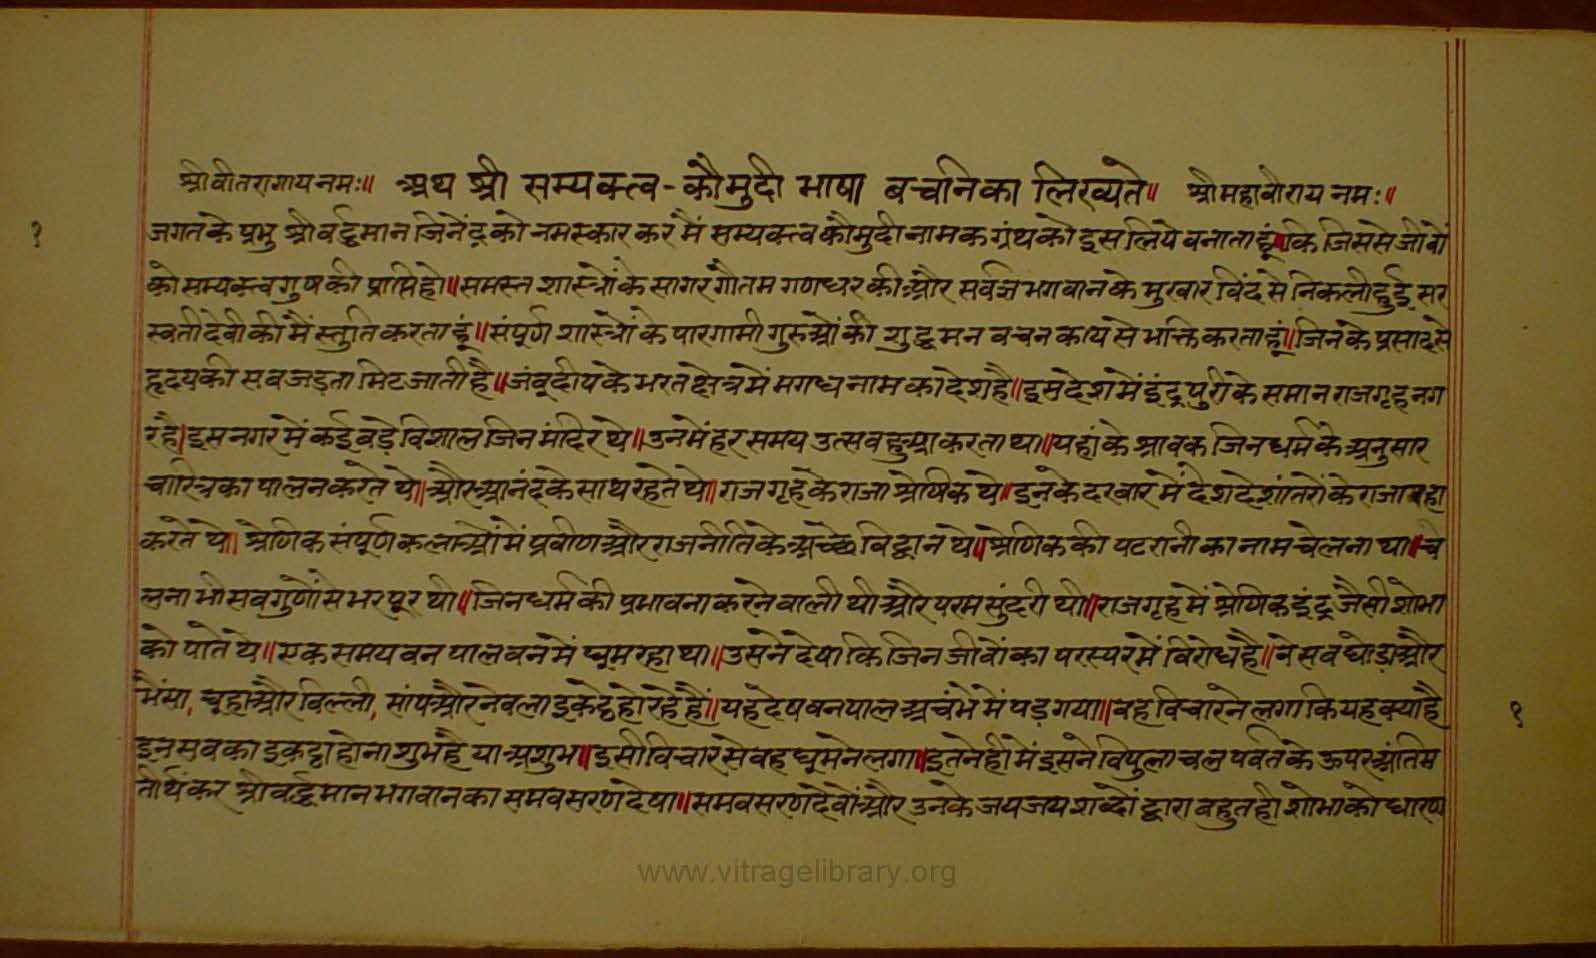 श्रीवीतरागायनमः॥ अथ श्री सम्यक्त्व-कौमुदी भाषा बचनिका लिख्यते॥ श्रीमहावीराय नमः॥
१
जगतके प्रभु श्रीवर्द्धमान जिनेंद्रको नमस्कार कर मैं सम्यक्त्व कौमुदी नामक ग्रंथको इसलिये बनाता हूं॥कि जिससे जीवों
को सम्यक्त्व गुषकी प्राप्ति हो॥समस्त शास्त्रोंके सागर गौतम गणधरकी और सर्वज्ञ भगवानके मुखारविंदसे निकली हुई सर
स्वती देवीकी मैं स्तुति करता हूं॥संपूर्ण शास्त्रोंके पारगामी गुरुओंकी शुद्ध मन वचन कायसे भक्ति करता हूं॥जिनके प्रसादसे
हृदयकी सब जड़ता मिट जाती है॥जंबूदीपके भरत क्षेत्रमें मगध नामका देश है॥इस देशमें इंद्रपुरीके समान राजगृह नग
र है॥इस नगरमें कई बड़े विशाल जिन मंदिर थे॥उनमें हर समय उत्सव हुआ करता था॥यहांके श्रावक जिनधर्मके अनुसार
चारित्रका पालन करते थे॥और आनंदके साथ रहते थे॥राजगृहके राजा श्रेणिक थे॥इनके दरबारमें देशदेशांतरोंके राजा रहा
करते थे॥श्रेणिक संपूर्ण कलाओंमें प्रवीण और राजनीतिके अच्छे विद्वान थे॥श्रेणिककी पटरानीका नाम चेलना था॥चे
लना भी सब गुणोंसे भरपूर थी॥जिनधर्मकी प्रभावना करनेवाली थी और परम सुंदरी थी॥राजगृहमें श्रेणिक इंद्र जैसी शोभा
को पाते थे॥एक समय वनपाल वनमें घूम रहा था॥उसने देषा कि जिन जीवोंका परस्परमें विरोध है॥वे सब घोड़ा और
भैंसा, चूहा और बिल्ली, सांप और नेवला इकट्ठे हो रहे हैं॥यह देष वनपाल अचंभेमें पड़ गया॥वह विचारने लगा कि यह क्या है
१
इन सबका इकट्ठा होना शुभ है या अशुभ॥इसी विचारसे वह घूमने लगा॥इतनेहीमें इसने विपुलाचल पर्वतके ऊपर अंतिम
तीर्थंकर श्रीवर्द्धमान भगवानका समवसरण देषा॥समवसरण देवों और उनके जयजय शब्दों द्वारा बहुत ही शोभाको धारण
www.vitragelibrary.org